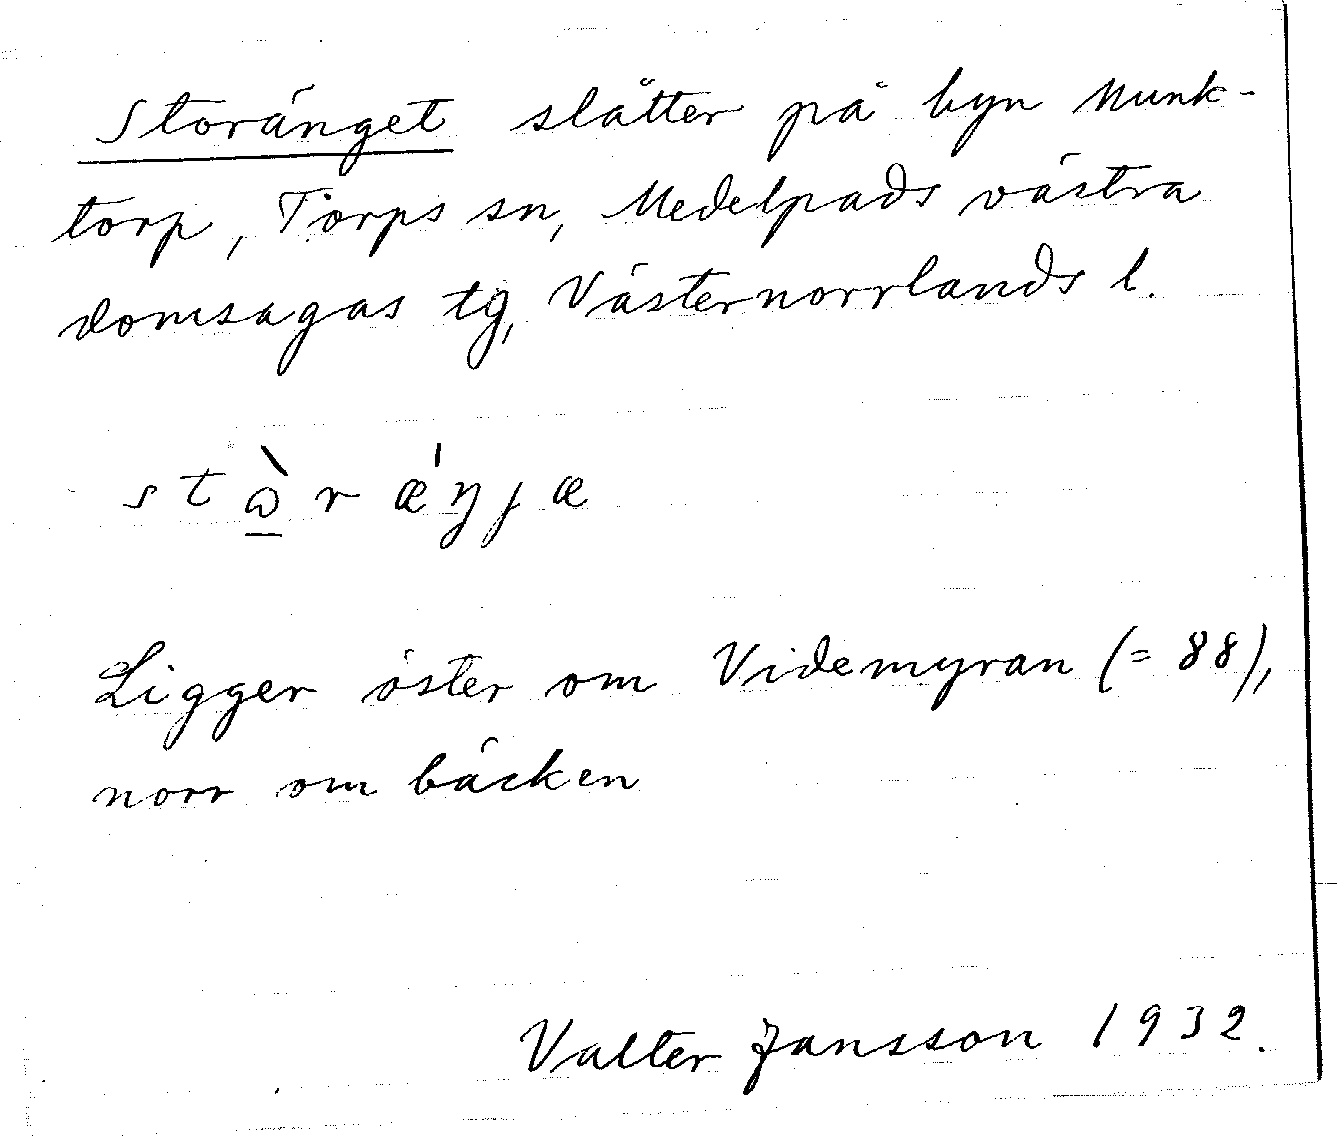 Storänget slåtter på byn Munk-
torp, Torps sn, Medelpads västra
domsagas tg, Västernorrlands l.
st ɷ̲̀ r ǽ ŋ j æ
Ligger öster om Videmyran (= 88),
norr om bäcken
Valter Jansson 1932.